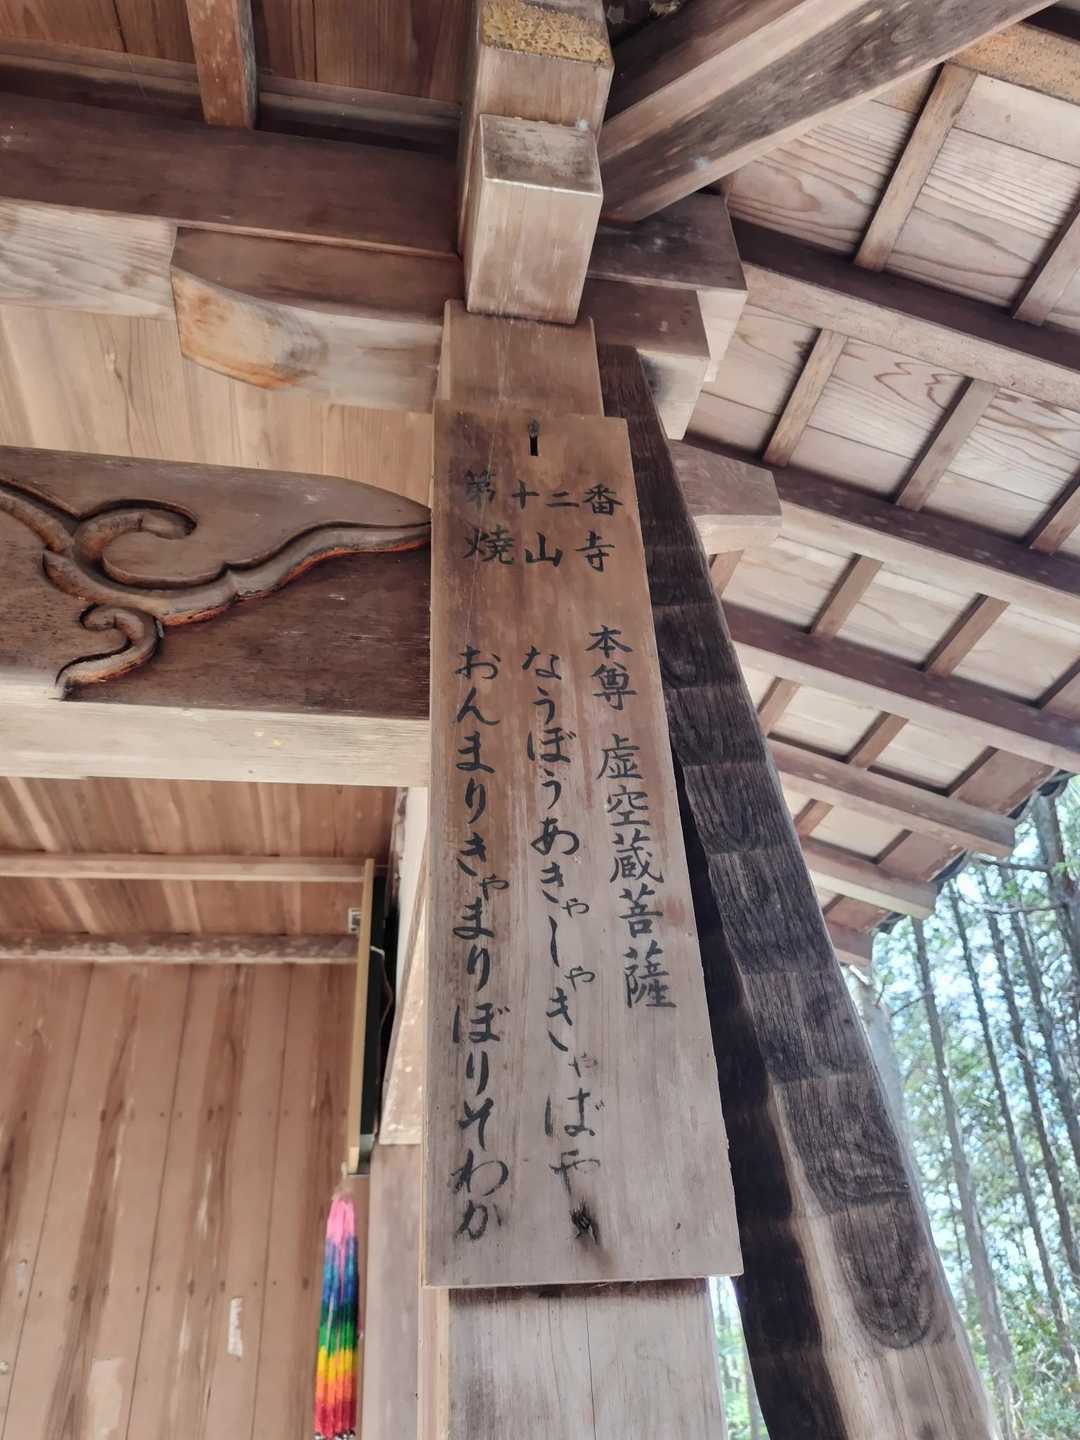 第十二番
焼山寺
本尊 虚空蔵菩薩
なうぼうあきゃしゃきゃばや
おんまりきゃまりぼりそわか